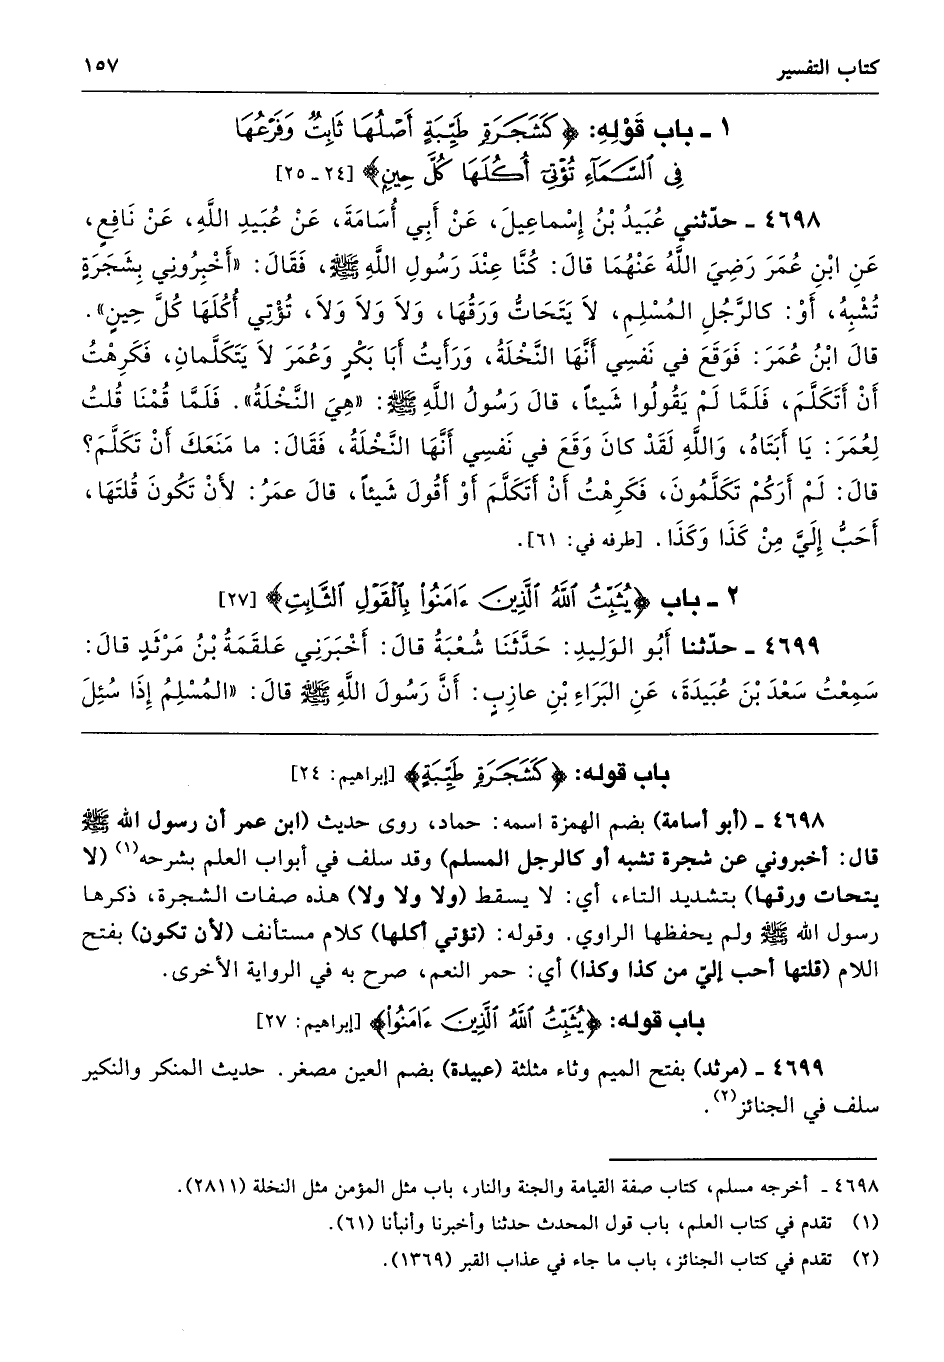 كتاب التفسير ١٥٧
١ ـ باب قَوْلِهِ: ﴿كَشَجَرَةٍ طَيِّبَةٍ أَصْلُهَا ثَابِتٌ وَفَرْعُهَا
فِى ٱلسَّمَآءِ تُؤْتِىٓ أُكُلَهَا كُلَّ حِينٍ﴾ [٢٤ ـ ٢٥]
٤٦٩٨ ـ حدّثني عُبَيدُ بْنُ إِسْماعِيلَ، عَنْ أَبِي أُسَامَةَ، عَنْ عُبَيدِ اللَّهِ، عَنْ نَافِعٍ،
عَنِ ابْنِ عُمَرَ رَضِيَ اللَّهُ عَنْهُمَا قالَ: كُنَّا عِنْدَ رَسُولِ اللَّهِ ﷺ، فَقَالَ: «أَخْبِرُونِي بِشَجَرَةٍ
تُشْبِهُ، أَوْ: كالرَّجُلِ المُسْلِمِ، لاَ يَتَحَاتُّ وَرَقُهَا، وَلاَ وَلاَ وَلاَ، تُؤْتِي أُكُلَهَا كُلَّ حِينٍ».
قالَ ابْنُ عُمَرَ: فَوَقَعَ في نَفْسِي أَنَّهَا النَّخْلَةُ، وَرَأَيتُ أَبَا بَكْرٍ وَعُمَرَ لاَ يَتَكَلَّمانِ، فَكَرِهْتُ
أَنْ أَتَكَلَّمَ، فَلَمَّا لَمْ يَقُولُوا شَيئاً، قالَ رَسُولُ اللَّهِ ﷺ: «هِيَ النَّخْلَةُ». فَلَمَّا قُمْنَا قُلتُ
لِعُمَرَ: يَا أَبَتَاهُ، وَاللَّهِ لَقَدْ كانَ وَقَعَ في نَفْسِي أَنَّهَا النَّخْلَةُ، فَقَالَ: ما مَنَعَكَ أَنْ تَكَلَّمَ؟
قالَ: لَمْ أَرَكُمْ تَكَلَّمُونَ، فَكَرِهْتُ أَنْ أَتَكَلَّمَ أَوْ أَقُولَ شَيئاً، قالَ عمَرُ: لأَنْ تَكُونَ قُلتَهَا،
أَحَبُّ إِلَيَّ مِنْ كَذَا وَكَذَا. [طرفه في: ٦١].
٢ ـ باب ﴿يُثَبِّتُ ٱللَّهُ ٱلَّذِينَ ءَامَنُوا۟ بِٱلْقَوْلِ ٱلثَّابِتِ﴾ [٢٧]
٤٦٩٩ ـ حدّثنا أَبُو الوَلِيدِ: حَدَّثَنَا شُعْبَةُ قالَ: أَخْبَرَنِي عَلقَمَةُ بْنُ مَرْثَدٍ قالَ:
سَمِعْتُ سَعْدَ بْنَ عُبَيدَةَ، عَنِ البَرَاءِ بْنِ عازِبٍ: أَنَّ رَسُولَ اللَّهِ ﷺ قالَ: «المُسْلِمُ إِذَا سُئِلَ
باب قوله: ﴿كَشَجَرَةٍ طَيِّبَةٍ﴾ [إبراهيم: ٢٤]
٤٦٩٨ ـ (أبو أسامة) بضم الهمزة اسمه: حماد، روى حديث (ابن عمر أن رسول الله ﷺ
قال: أخبروني عن شجرة تشبه أو كالرجل المسلم) وقد سلف في أبواب العلم بشرحه(١) (لا
يتحات ورقها) بتشديد التاء، أي: لا يسقط (ولا ولا ولا) هذه صفات الشجرة، ذكرها
رسول الله ﷺ ولم يحفظها الراوي. وقوله: (تؤتي أكلها) كلام مستأنف (لأن تكون) بفتح
اللام (قلتها أحب إليّ من كذا وكذا) أي: حمر النعم، صرح به في الرواية الأخرى.
باب قوله: ﴿يُثَبِّتُ ٱللَّهُ ٱلَّذِينَ ءَامَنُوا۟﴾ [إبراهيم: ٢٧]
٤٦٩٩ ـ (مرثد) بفتح الميم وثاء مثلثة (عبيدة) بضم العين مصغر. حديث المنكر والنكير
سلف في الجنائز(٢).
٤٦٩٨ ـ أخرجه مسلم، كتاب صفة القيامة والجنة والنار، باب مثل المؤمن مثل النخلة (٢٨١١).
(١) تقدم في كتاب العلم، باب قول المحدث حدثنا وأخبرنا وأنبأنا (٦١).
(٢) تقدم في كتاب الجنائز، باب ما جاء في عذاب القبر (١٣٦٩).